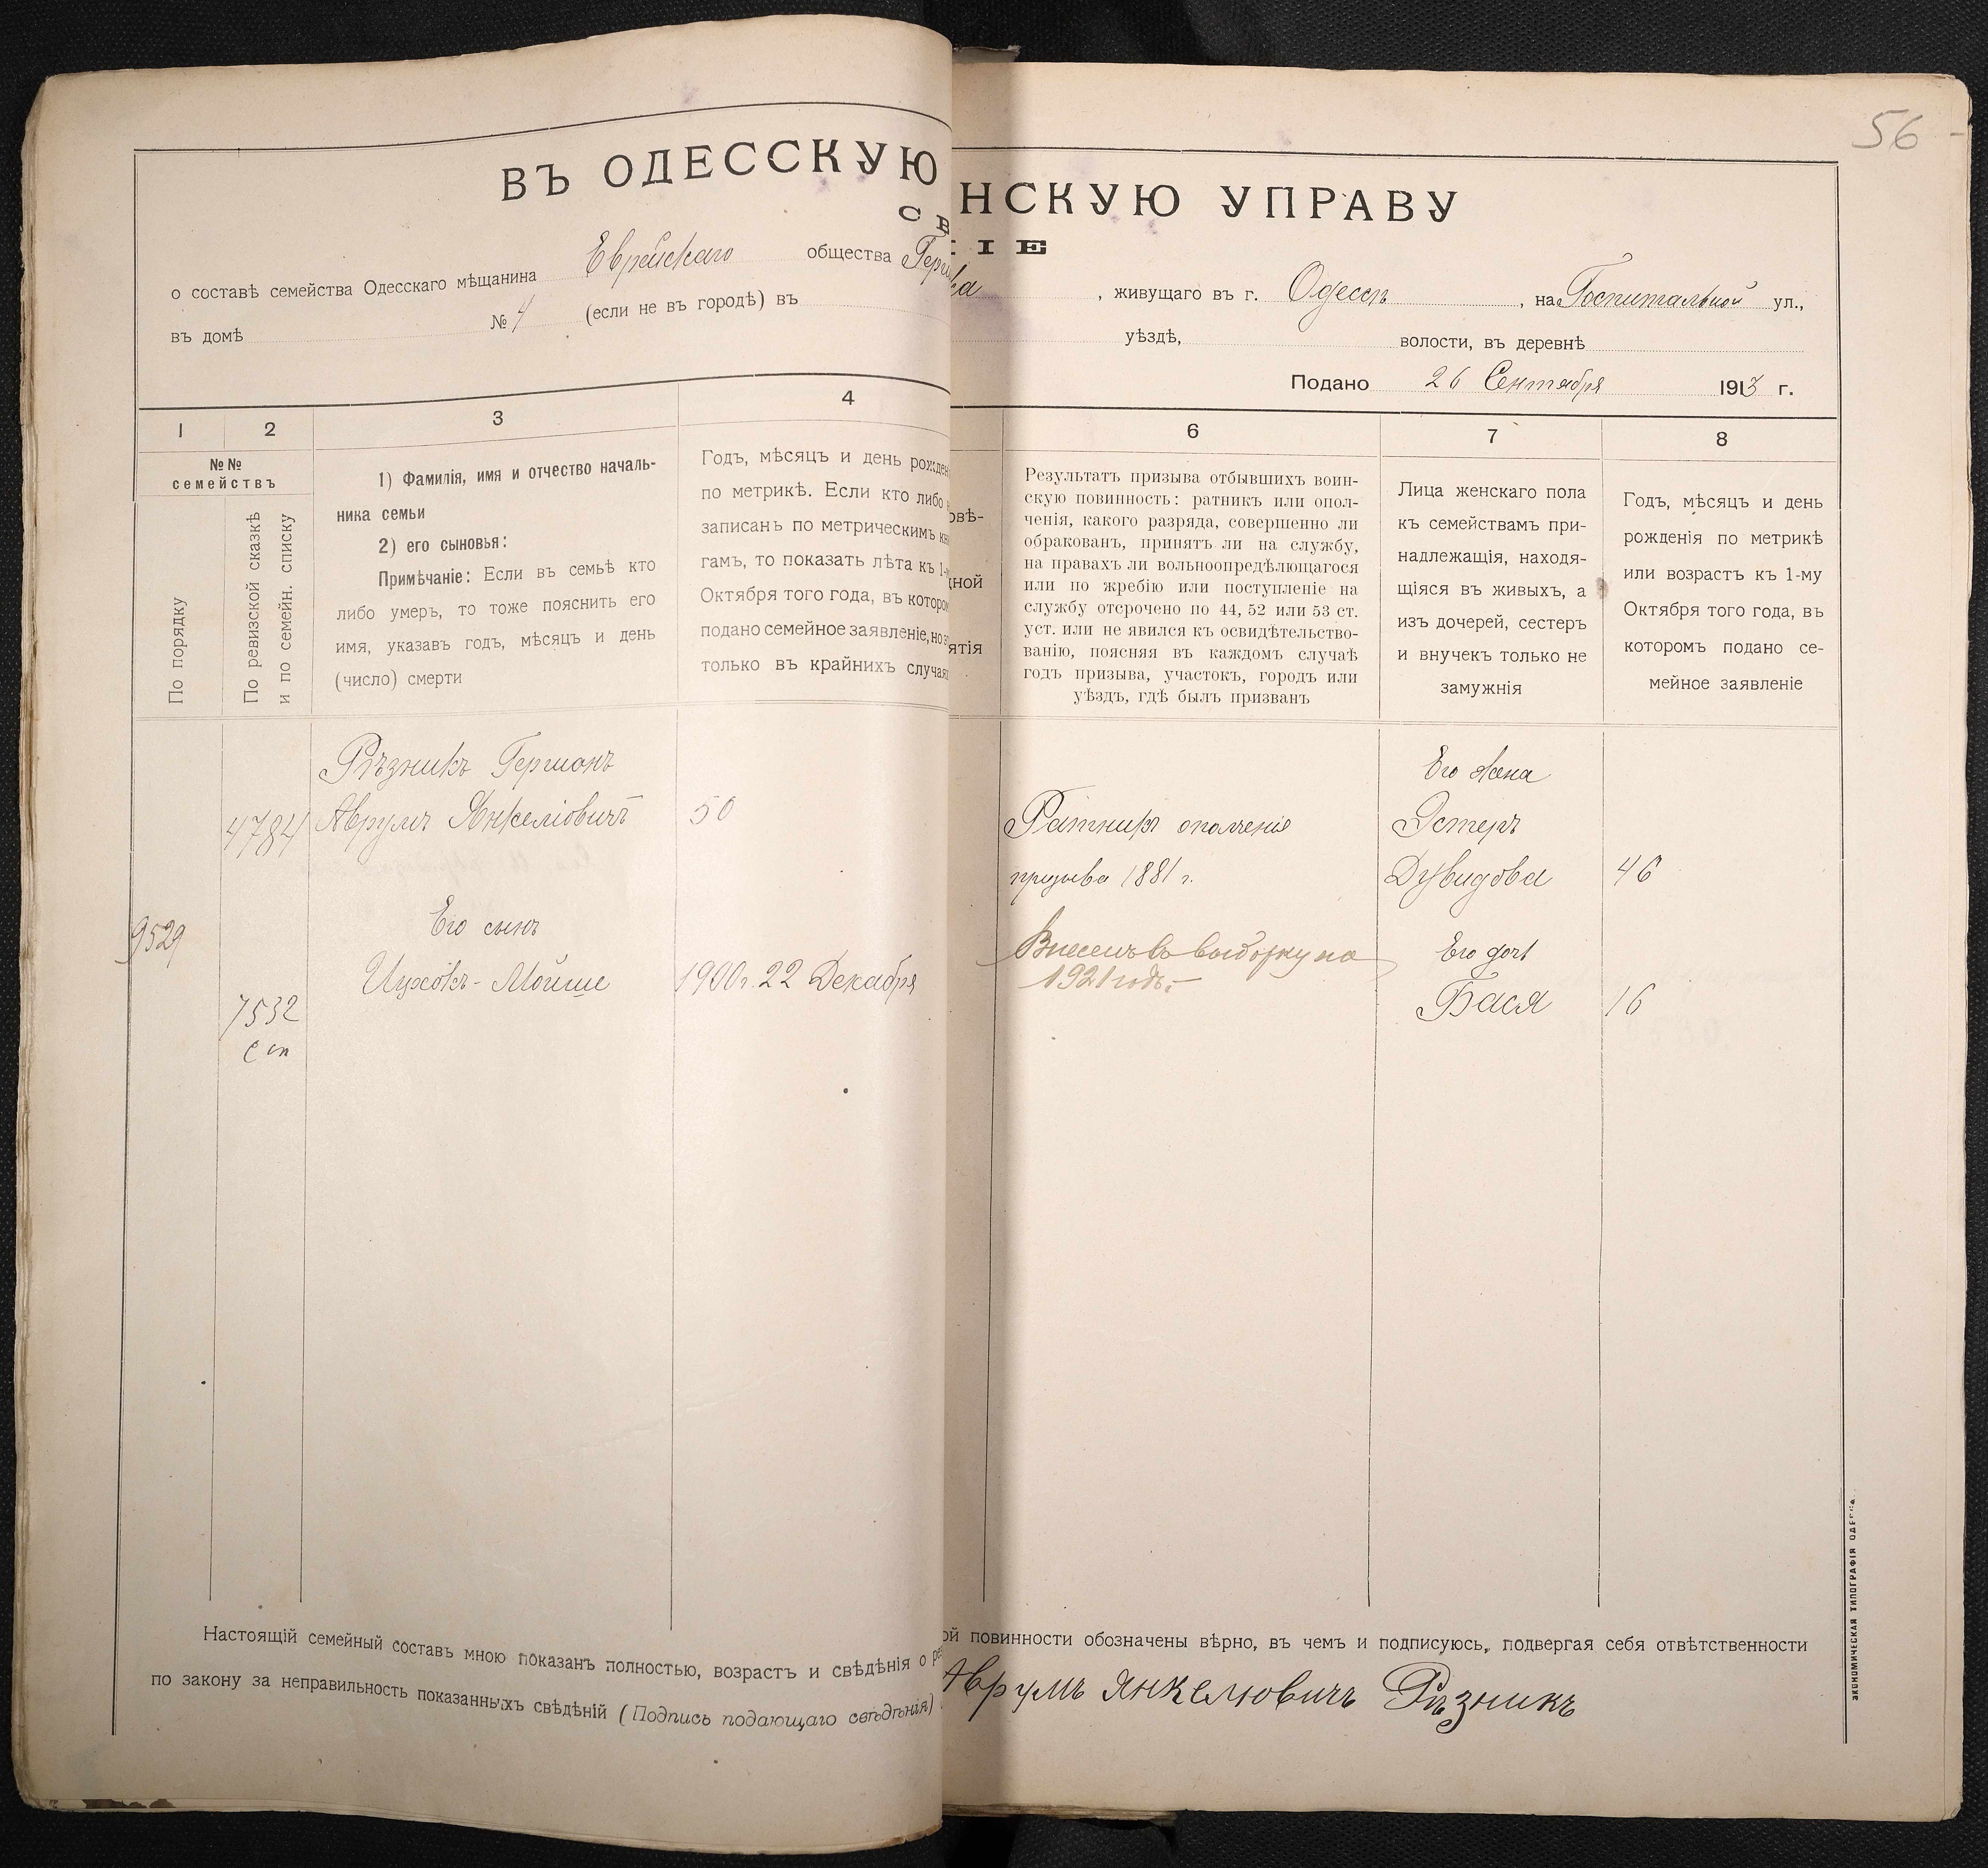 56
ВЪ ОДЕССКУЮ НСКУЮ УПРАВУ
СВ ІЕ
о составѣ семейства Одесскаго мѣщанина Еврейскаго общества , живущаго въ г. Одессѣ , на Госпитальной ул.,
въ домѣ № 4 (если не въ городѣ) въ уѣздѣ, волости, въ деревнѣ
Подано 26 Сентября 1913 г.
1 2 3 4 6 7 8
№№ семействъ
По порядку
По ревизской сказкѣ
и по семейн. списку
1) Фамилія, имя и отчество началь-
ника семьи
2) его сыновья:
Примѣчаніе: Если въ семьѣ кто
либо умеръ, то тоже пояснить его
имя, указавъ годъ, мѣсяцъ и день
(число) смерти
Годъ, мѣсяцъ и день рожден
по метрикѣ. Если кто либо
записанъ по метрическимъ кн
гамъ, то показать лѣта къ 1-
Октября того года, въ которо
подано семейное заявленіе, но
только въ крайнихъ случая
овѣ-
ной
ятія
Результатъ призыва отбывшихъ воин-
скую повинность: ратникъ или опол-
ченія, какого разряда, совершенно ли
обракованъ, принятъ ли на службу,
на правахъ ли вольноопредѣлющагося
или по жребію или поступленіе на
службу отсрочено по 44, 52 или 53 ст.
уст. или не явился къ освидѣтельство-
ванію, поясняя въ каждомъ случаѣ
годъ призыва, участокъ, городъ или
уѣздъ, гдѣ былъ призванъ
Лица женскаго пола
къ семействамъ при-
надлежащія, находя-
щіяся въ живыхъ, а
изъ дочерей, сестеръ
и внучекъ только не
замужнія
Годъ, мѣсяцъ и день
рожденія по метрикѣ
или возрастъ къ 1-му
Октября того года, въ
которомъ подано се-
мейное заявленіе
9529
4784
7532
сп
Рѣзникъ Гершонъ
Аврумъ Янкеліовичъ
50
Его сынъ
Ицхокъ-Мойше
1900 г. 22 Декабря
Ратникъ ополченія
призыва 1881 г.
Внесенъ въ выборку на
1921 годъ.-
Его жена
Эстеръ
Дувидова
46
Его доч
Бася
16
Настоящій семейный составъ мною показанъ полностью, возрастъ и свѣдѣнія о ой повинности обозначены вѣрно, въ чемъ и подписуюсь, подвергая себя отвѣтственности
по закону за неправильность показанныхъ свѣдѣній (Подпись подающаго свѣдѣнія) Аврумъ Янкелювичъ Рѣзникъ
ЭКОНОМИЧЕСКАЯ ТИПОГРАФІЯ ОДЕССА